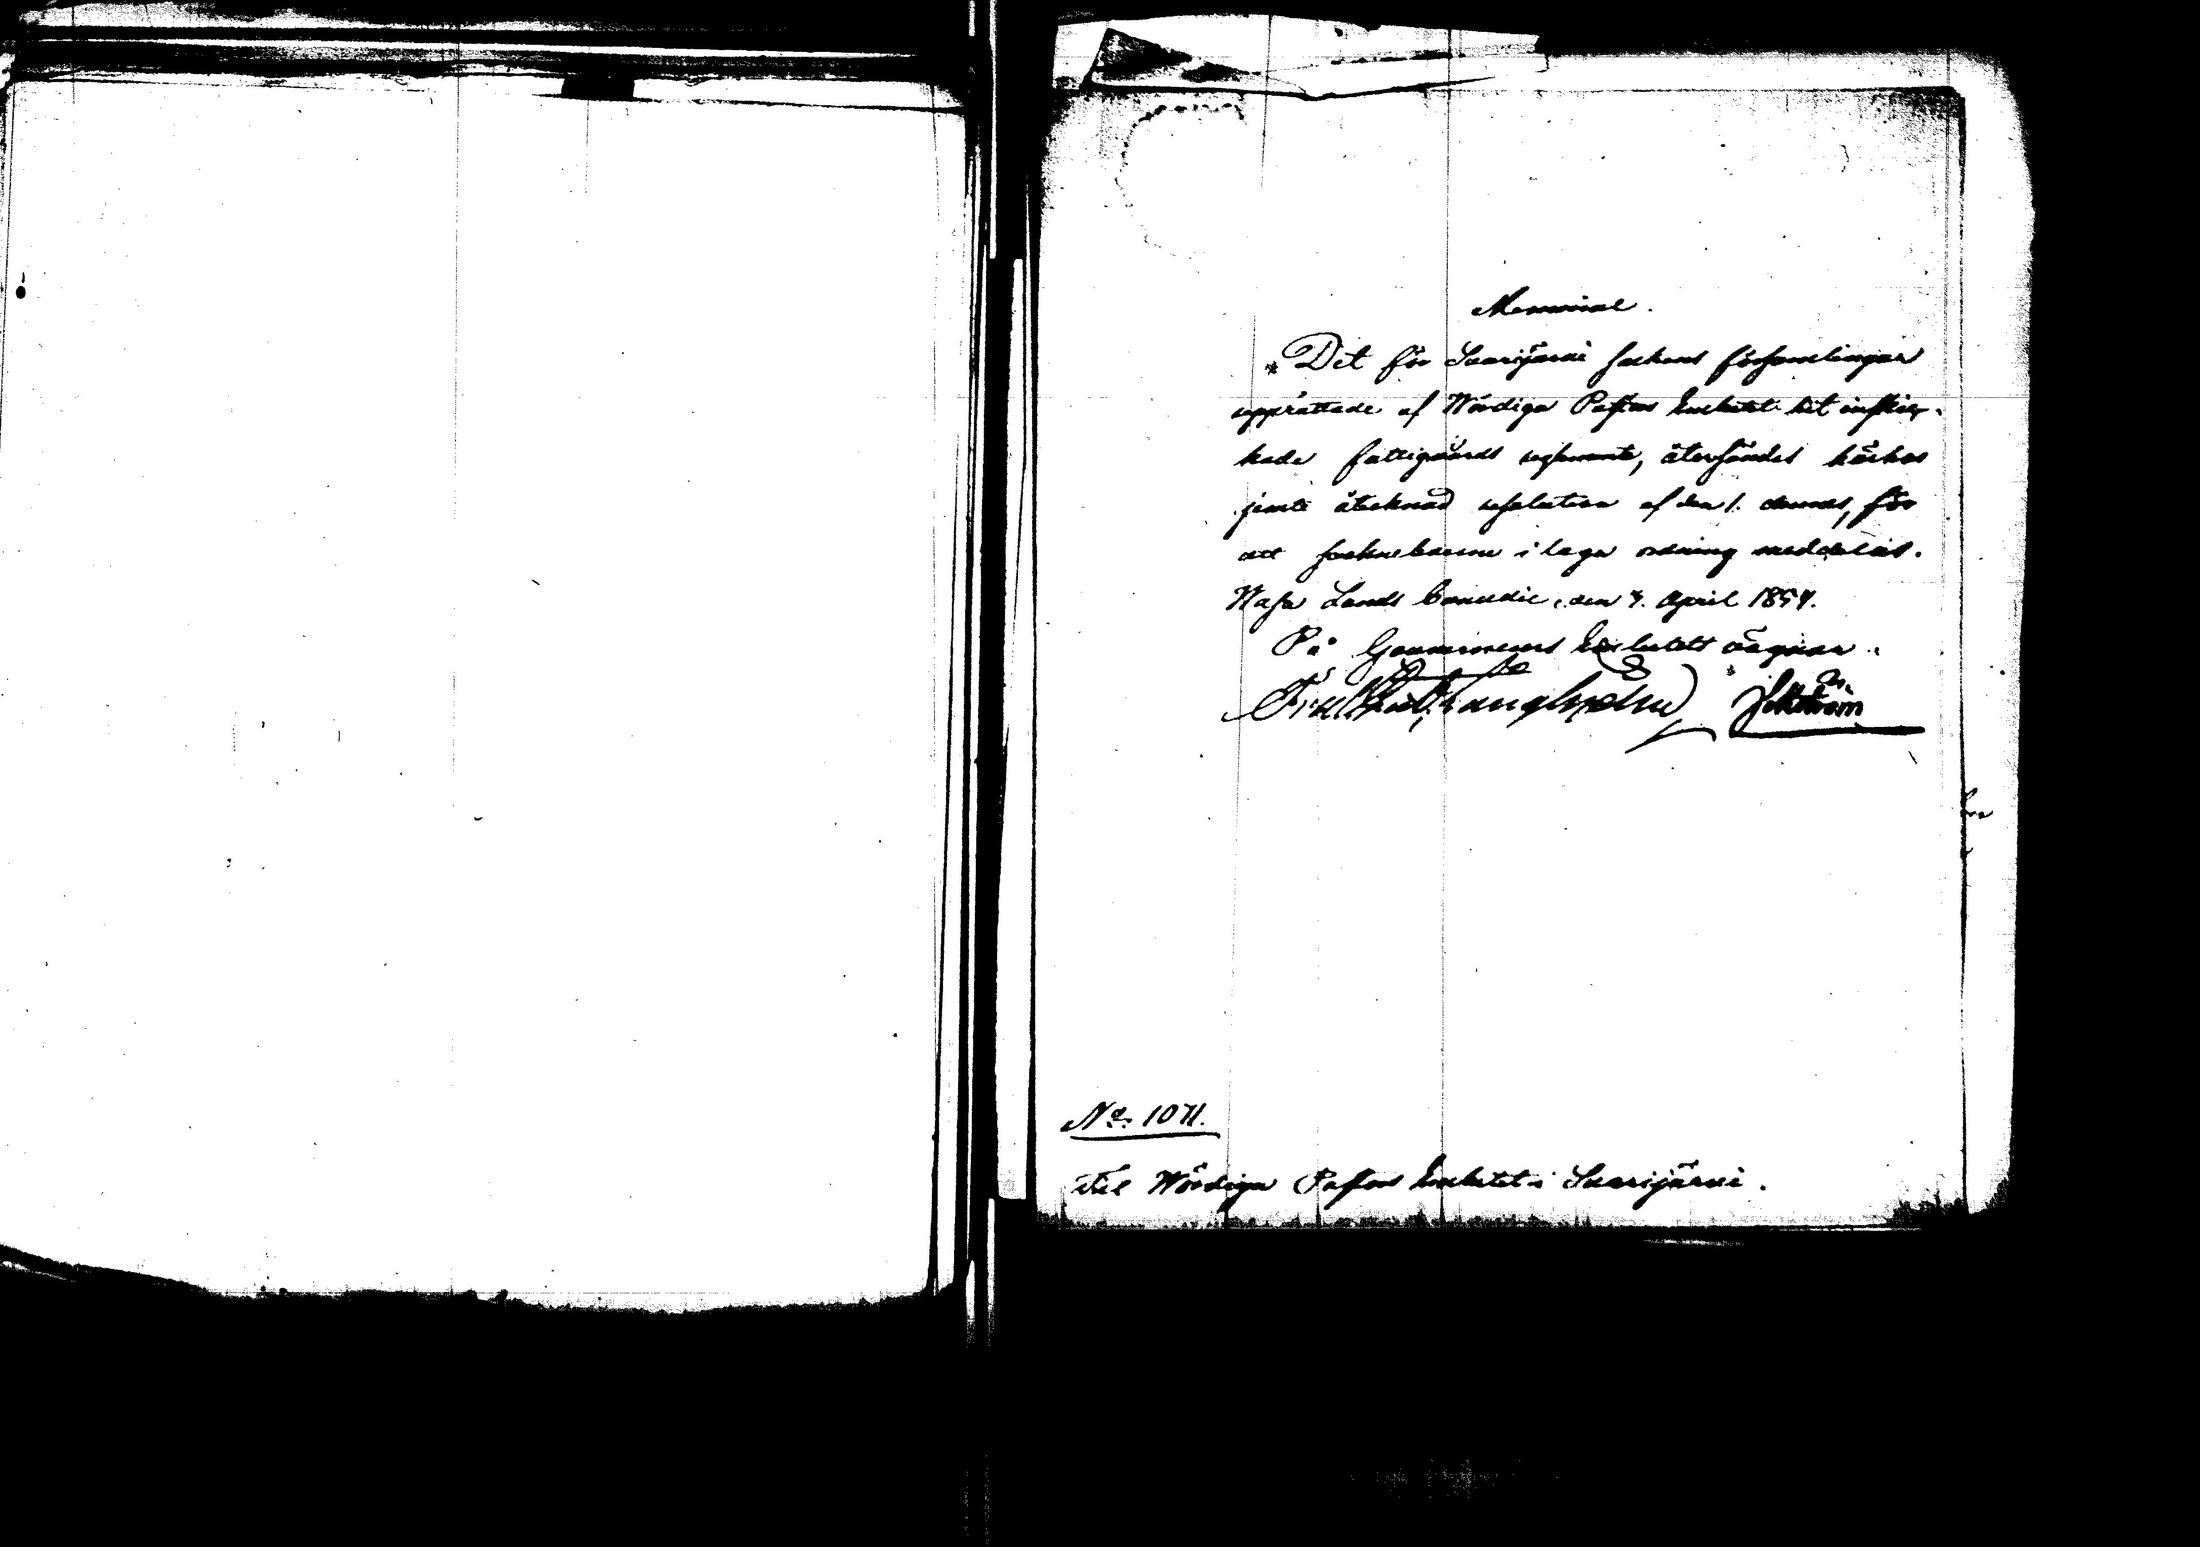 Memorial.
Det för Saarijärvi sockens församlingar
upprättade af Wördiga Pastors Embetet hit inskic-
kade fattigvårds reglemente, återsändes härhos
jemte åtecknad resolution af den 1. dennes, för
att sockneboerne i laga ordning meddelas.
Wasa Lands Cancellie, den 7. April 1857.
På Gouverneurs Embetets vägnar.
No. 1071.
Till Wördiga Pastors Embetet i Saarijärvi.